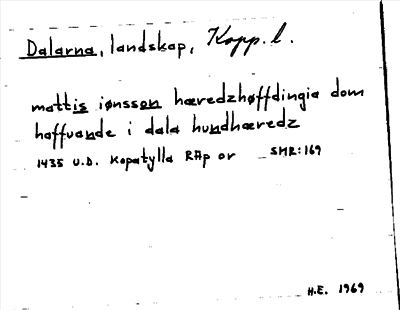 Dalarna, landskap, Kopp. l.
mattis iønsson hæredzhøffdingia dom
haffuande i dala hundhæredz
1435 u.d. Kopatylla RAp or SMR:169
H.E. 1969